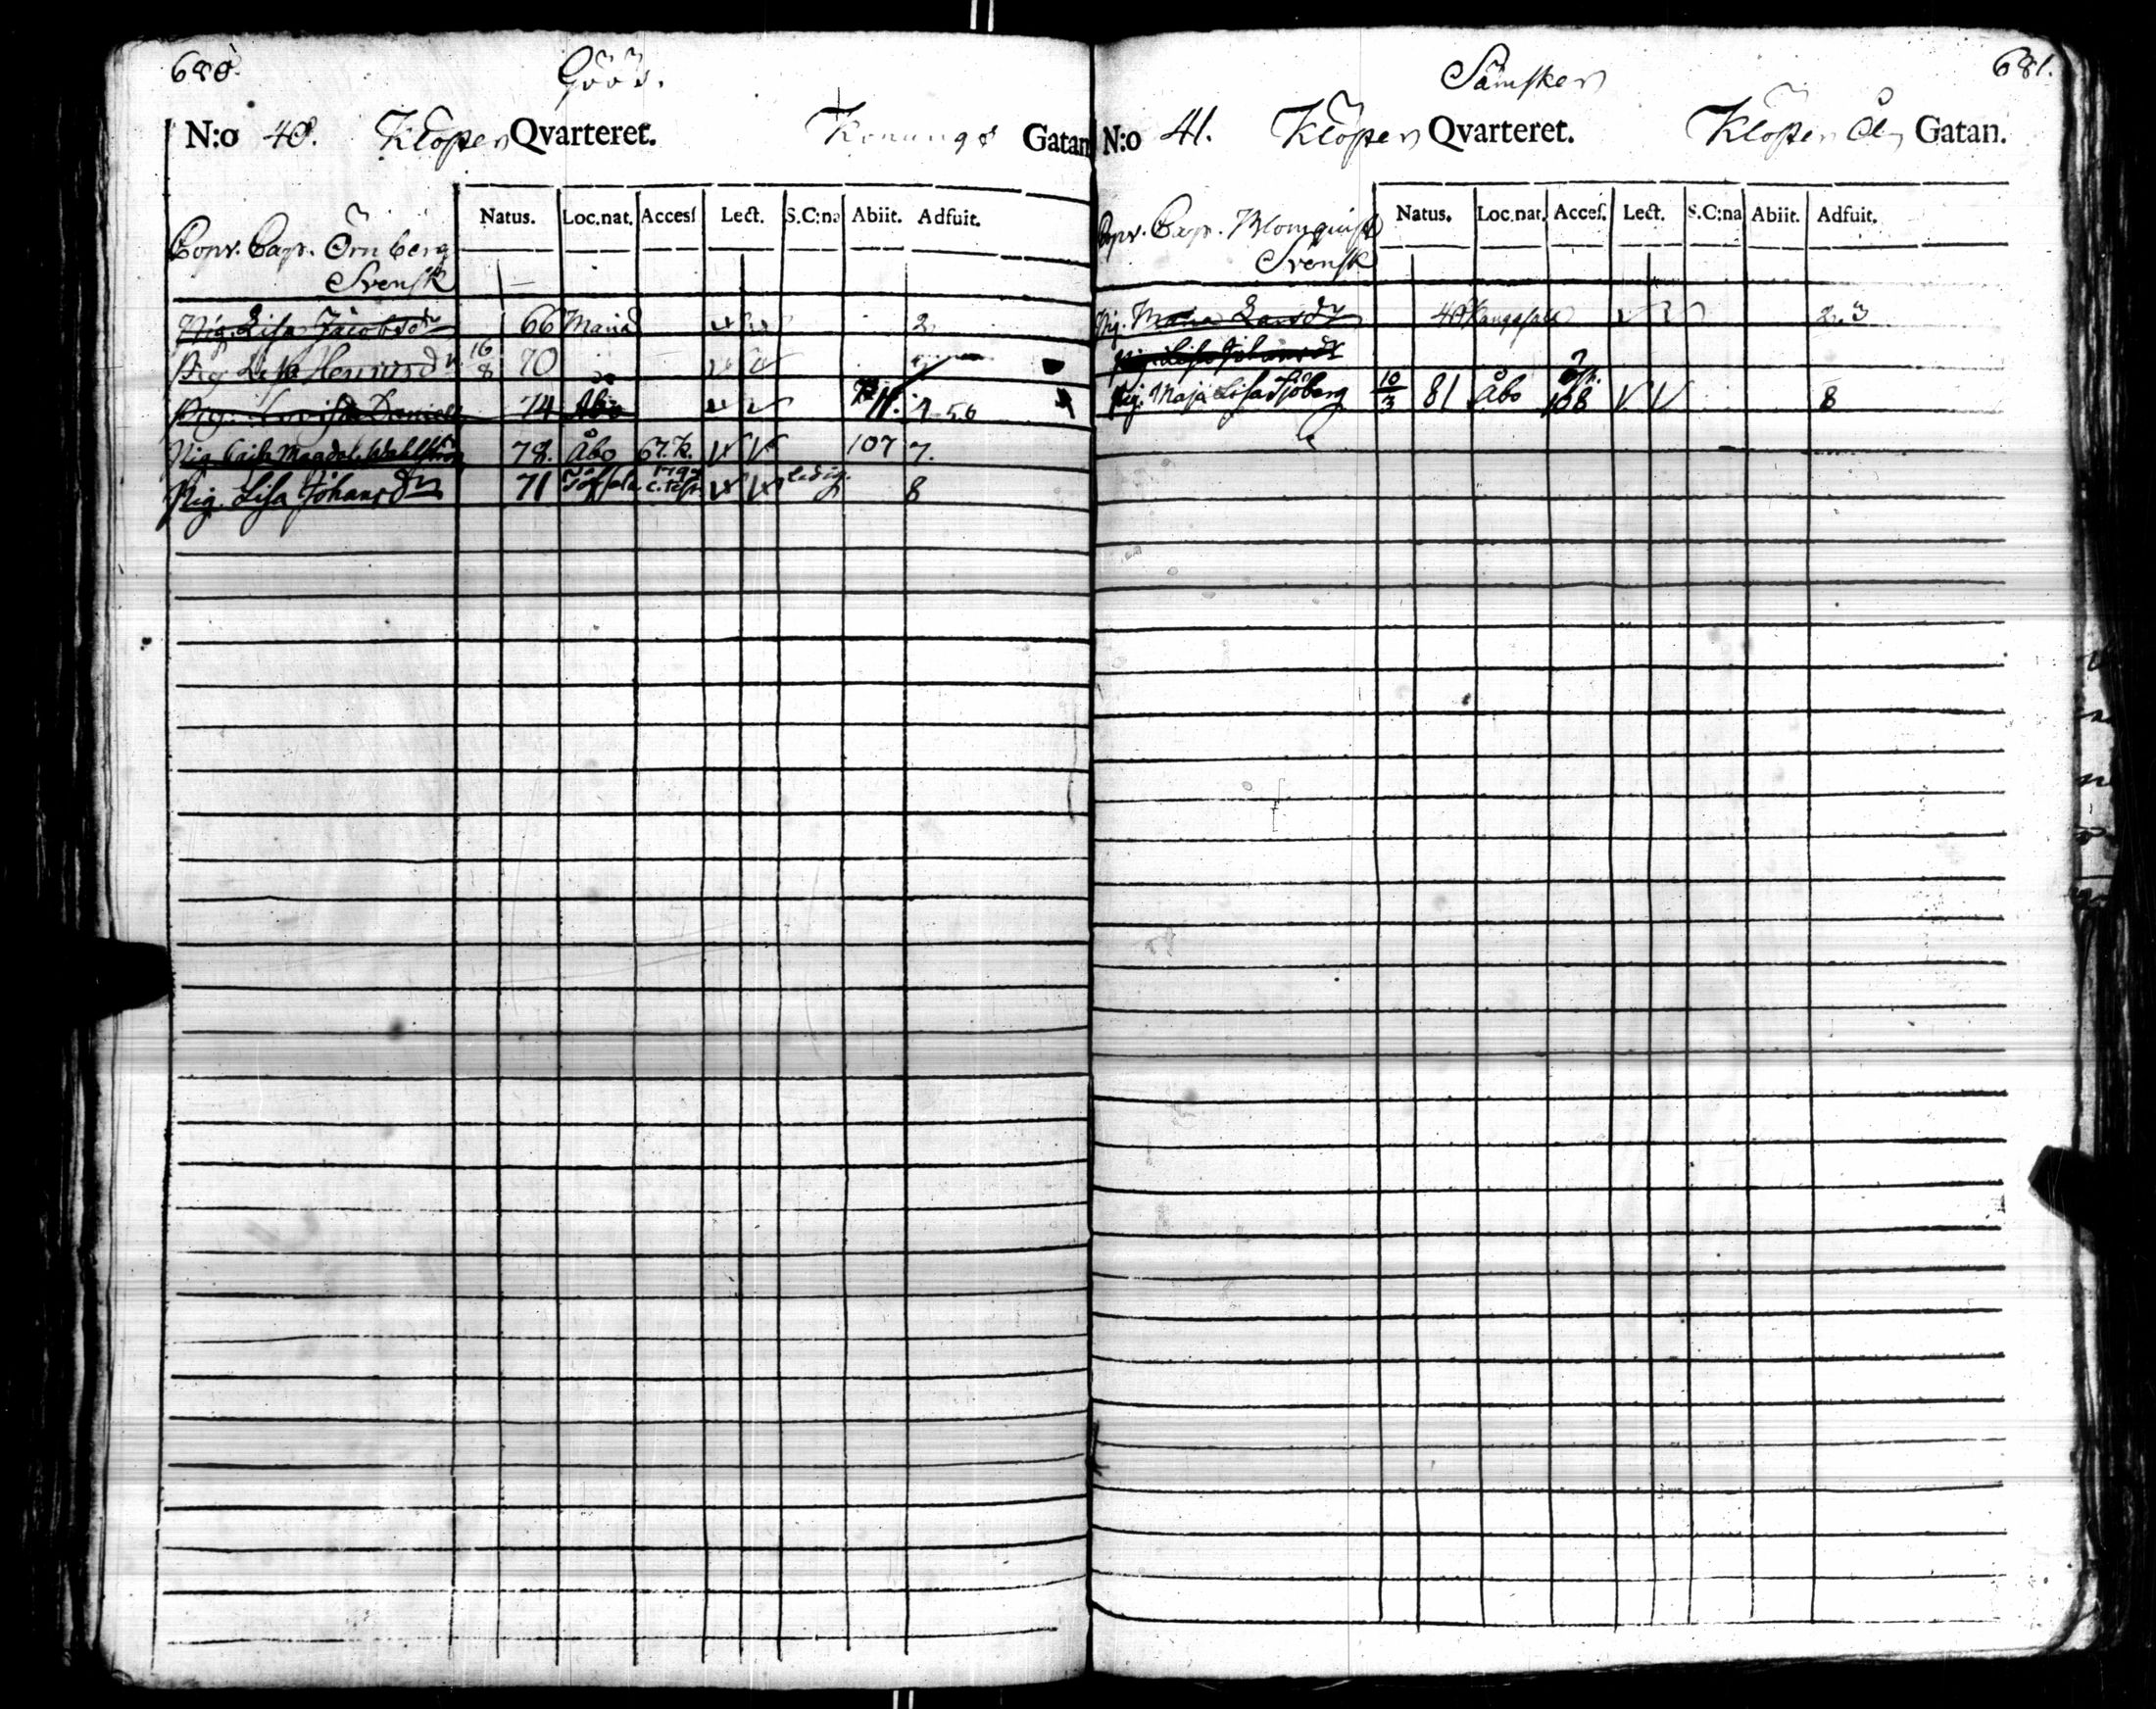 680.
Göös.
N:o 40. Klöster Qvarteret. Konungs Gatan
Natus. Loc.nat. Access Lect. S.C:na Abiit. Adfuit.
Copv. Cap. Örnberg
Svensk
Pig. Lisa Jacobsdr 66 Maria 2
Pig. Lisa Henricsdr 16 8 70
Pig. Lovisa Daniels 74 Åbo 11. 4 5 6
Pig. Cajsa Magdal. Wahlström 78. Åbo 67. K. 107 7.
Pig. Lisa Johansdr 71 1797 ledig. 8
681.
Sämsker
N:o 41. Klöster Qvarteret. Klöster Ån Gatan.
Natus. Loc.nat. Acces. Lect. S.C:na Abiit. Adfuit.
Copv. Cap. Blomquist
Svensk
Pig. Maria Larsdr 40 2. 3
Pig. Lisa Johansdr
Pig. Maja Lisa Sjöberg 10/3 81 Åbo 108 8